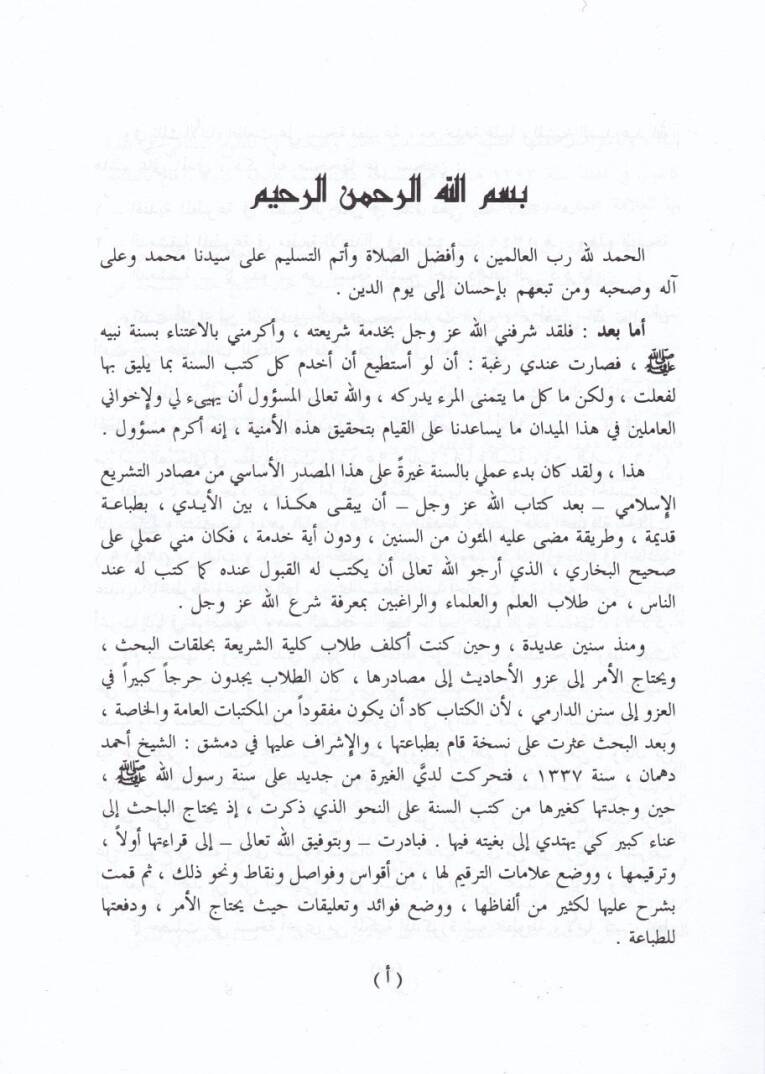 بسم الله الرحمن الرحيم
الحمد لله رب العالمين ، وأفضل الصلاة وأتم التسليم على سيدنا محمد وعلى
آله وصحبه ومن تبعهم بإحسان إلى يوم الدين .
أما بعد : فلقد شرفني الله عز وجل بخدمة شريعته ، وأكرمني بالاعتناء بسنة نبيه
ﷺ ، فصارت عندي رغبة : أن لو أستطيع أن أخدم كل كتب السنة بما يليق بها
لفعلت ، ولكن ما كل ما يتمنى المرء يدركه ، والله تعالى المسؤول أن يهيىء لي ولإخواني
العاملين في هذا الميدان ما يساعدنا على القيام بتحقيق هذه الأمنية ، إنه أكرم مسؤول .
هذا ، ولقد كان بدء عملي بالسنة غيرةً على هذا المصدر الأساسي من مصادر التشريع
الإسلامي – بعد كتاب الله عز وجل – أن يبقى هكذا ، بين الأيدي ، بطباعة
قديمة ، وطريقة مضى عليه المئون من السنين ، ودون أية خدمة ، فكان مني عملي على
صحيح البخاري ، الذي أرجو الله تعالى أن يكتب له القبول عنده كما كتب له عند
الناس ، من طلاب العلم والعلماء والراغبين بمعرفة شرع الله عز وجل .
ومنذ سنين عديدة ، وحين كنت أكلف طلاب كلية الشريعة بحلقات البحث ،
ويحتاج الأمر إلى عزو الأحاديث إلى مصادرها ، كان الطلاب يجدون حرجاً كبيراً في
العزو إلى سنن الدارمي ، لأن الكتاب كاد أن يكون مفقوداً من المكتبات العامة والخاصة ،
وبعد البحث عثرت على نسخة قام بطباعتها ، والإشراف عليها في دمشق : الشيخ أحمد
دهمان ، سنة ١٣٣٧ ، فتحركت لديَّ الغيرة من جديد على سنة رسول الله ﷺ ،
حين وجدتها كغيرها من كتب السنة على النحو الذي ذكرت ، إذ يحتاج الباحث إلى
عناء كبير كي يهتدي إلى بغيته فيها . فبادرت – وبتوفيق الله تعالى – إلى قراءتها أولاً ،
وترقيمها ، ووضع علامات الترقيم لها ، من أقواس وفواصل ونقاط ونحو ذلك ، ثم قمت
بشرح عليها لكثير من ألفاظها ، ووضع فوائد وتعليقات حيث يحتاج الأمر ، ودفعتها
للطباعة .
( أ )